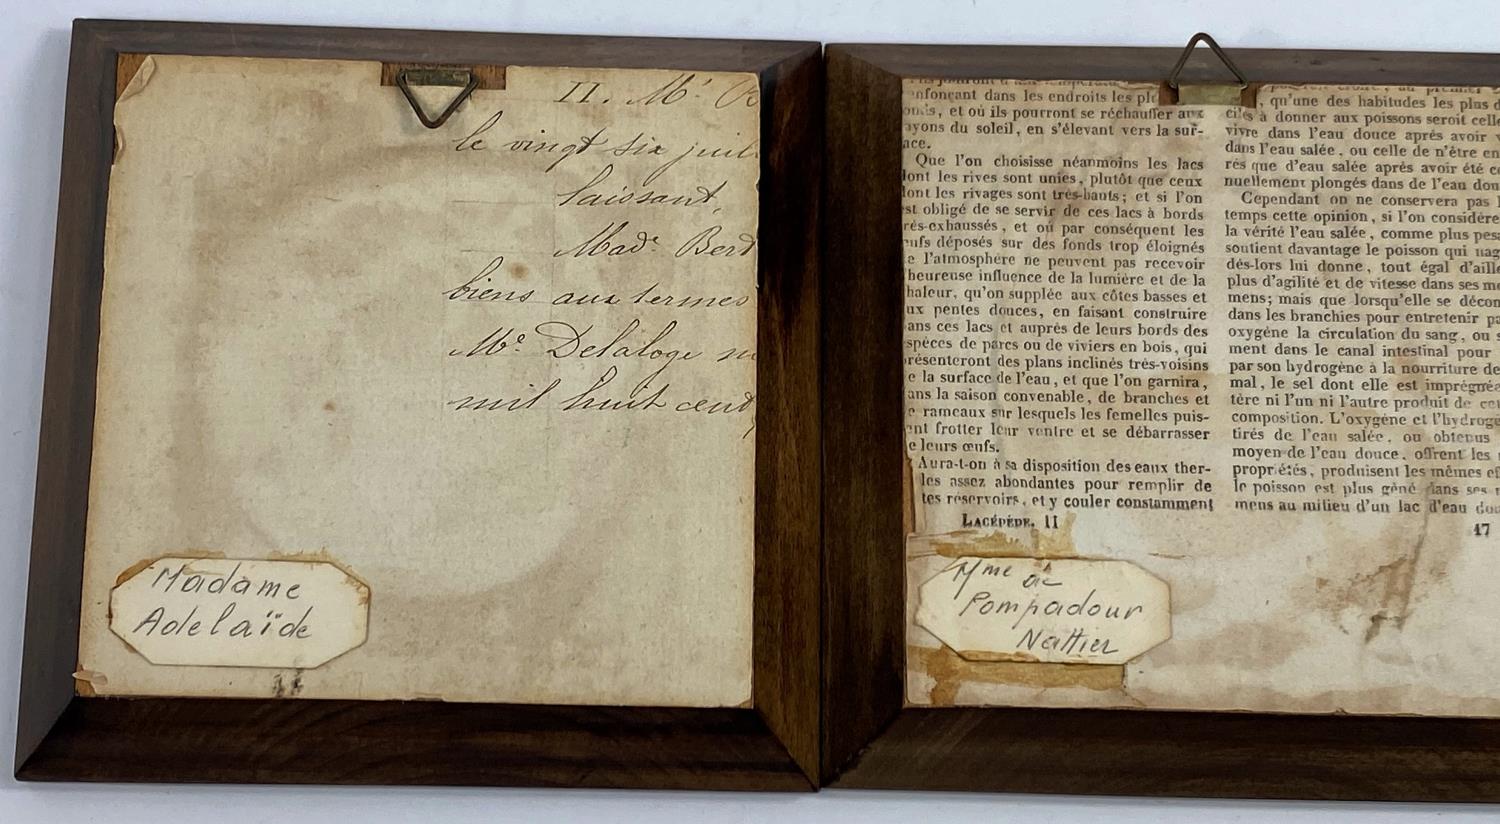 II. Mr B
le vingt six juil
laissant,
Made Berd
biens aux termes
Me Delaloge
mil huit cent
Madame
Adelaïde
enfonçant dans les endroits les
, et où ils pourront se réchauffer aux
ayons du soleil, en s'élevant vers la sur-
ace.
Que l'on choisisse néanmoins les lacs
dont les rives sont unies, plutôt que ceux
dont les rivages sont très-hauts; et si l'on
est obligé de se servir de ces lacs à bords
rès-exhaussés, et où par conséquent les
œufs déposés sur des fonds trop éloignés
e l'atmosphère ne peuvent pas recevoir
'heureuse influence de la lumière et de la
haleur, qu'on supplée aux côtes basses et
ux pentes douces, en faisant construire
ans ces lacs et auprès de leurs bords des
spèces de parcs ou de viviers en bois, qui
résenteront des plans inclinés très-voisins
e la surface de l'eau, et que l'on garnira,
ans la saison convenable, de branches et
e rameaux sur lesquels les femelles puis-
ent frotter leur ventre et se débarrasser
e leurs œufs.
Aura-t-on à sa disposition des eaux ther-
les assez abondantes pour remplir de
tes réservoirs, et y couler constamment
LACÉPÈDE. II
, qu'une des habitudes les plus d
ciles à donner aux poissons seroit celle
vivre dans l'eau douce après avoir v
dans l'eau salée, ou celle de n'être en
rés que d'eau salée après avoir été co
nuellement plongés dans de l'eau dou
Cependant on ne conservera pas l
temps cette opinion, si l'on considère
la vérité l'eau salée, comme plus pesa
soutient davantage le poisson qui nag
dès-lors lui donne, tout égal d'aille
plus d'agilité et de vitesse dans ses mo
mens; mais que lorsqu'elle se décom
dans les branchies pour entretenir pa
oxygène la circulation du sang, ou s
ment dans le canal intestinal pour
par son hydrogène à la nourriture de
mal, le sel dont elle est imprégnée
tère ni l'un ni l'autre produit de cet
composition. L'oxygène et l'hydrogè
tirés de l'eau salée, ou obtenus
moyen de l'eau douce, offrent les
propriétés, produisent les mêmes ef
le poisson est plus gêné dans ses
mens au milieu d'un lac d'eau dou
17
Mme de
Pompadour
Nattier